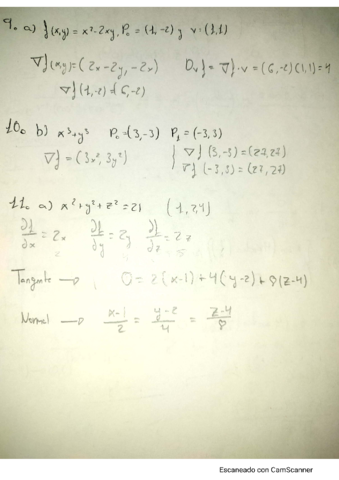 9. a) f(x,y) = x²-2xy, P₀ = (1,-2) y v = (1,1)
∇f(x,y) = (2x-2y, -2x) Dᵥf = ∇f·v = (6,-2)(1,1) = 4
∇f(1,-2) = (6,-2)
10. b) x³+y³ P₀ = (3,-3) P₁ = (-3,3)
∇f = (3x², 3y²) { ∇f(3,-3) = (27,27)
∇f(-3,3) = (27,27)
11. a) x²+y²+z² = 21 (1,2,4)
∂f/∂x = 2x ∂f/∂y = 2y ∂f/∂z = 2z
Tangente → 0 = 2(x-1)+4(y-2)+8(z-4)
Normal → x-1/2 = y-2/4 = z-4/8
Escaneado con CamScanner